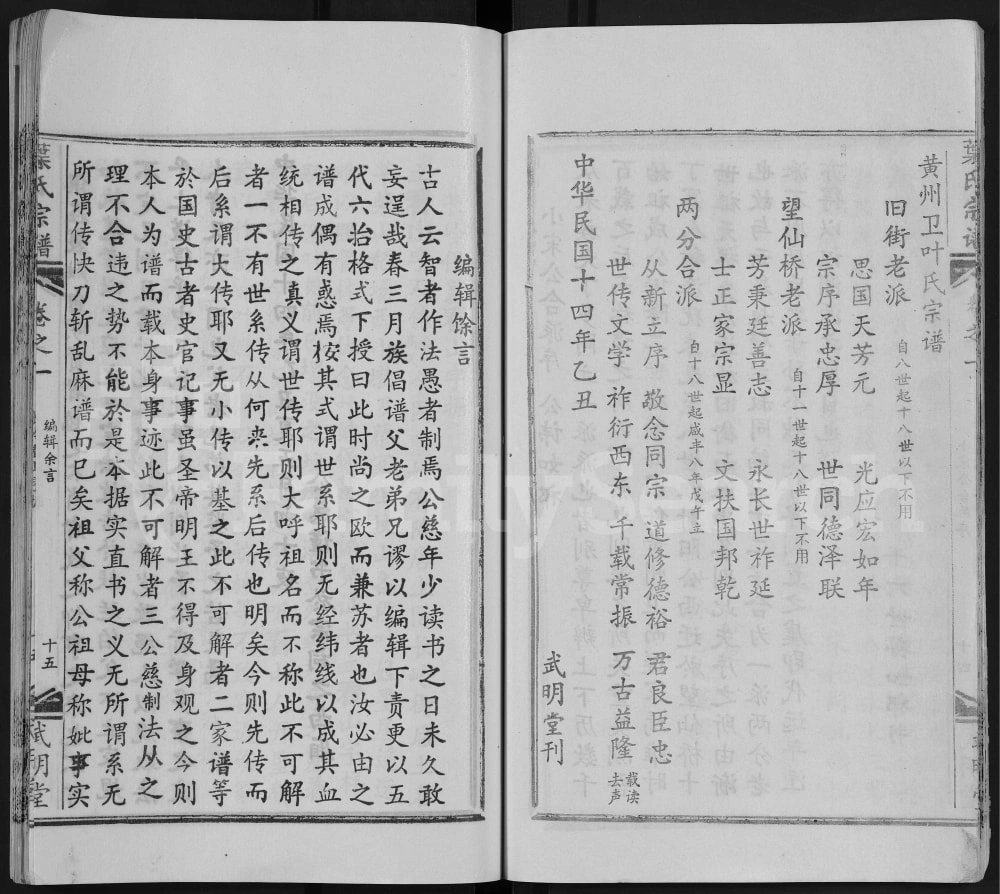 黄州卫叶氏宗谱
旧街老派 自八世起十八世以下不用
思国天芳元 光应宏如年
宗序承忠厚 世同德泽联
望仙桥老派 自十一世起十八世以下不用
芳秉廷善志 永长世祚延
士正家宗显 文扶国邦乾
两分合派 自十八世起咸丰八年戊午立
从新立序 敬念同宗 道修德裕 君良臣忠
世传文学 祚衍西东 千载常振 万古益隆 载读去声
中华民国十四年乙丑 武明堂刊
编辑馀言
古人云智者作法愚者制焉公慈年少读书之日未久敢
妄逞哉春三月族倡谱父老弟兄谬以编辑下责更以五
代六抬格式下授曰此时尚之欧而兼苏者也汝必由之
谱成偶有惑焉桉其式谓世系耶则无经纬线以成其血
统相传之真义谓世传耶则大呼祖名而不称此不可解
者一不有世系传从何来先系后传也明矣今则先传而
后系谓大传耶又无小传以基之此不可解者二家谱等
於国史古者史官记事虽圣帝明王不得及身观之今则
本人为谱而载本身事迹此不可解者三公慈制法从之
理不合违之势不能於是本据实直书之义无所谓系无
所谓传快刀斩乱麻谱而已矣祖父称公祖母称妣事实
葉氏宗谱 卷之一 编辑余言 十五 武明堂